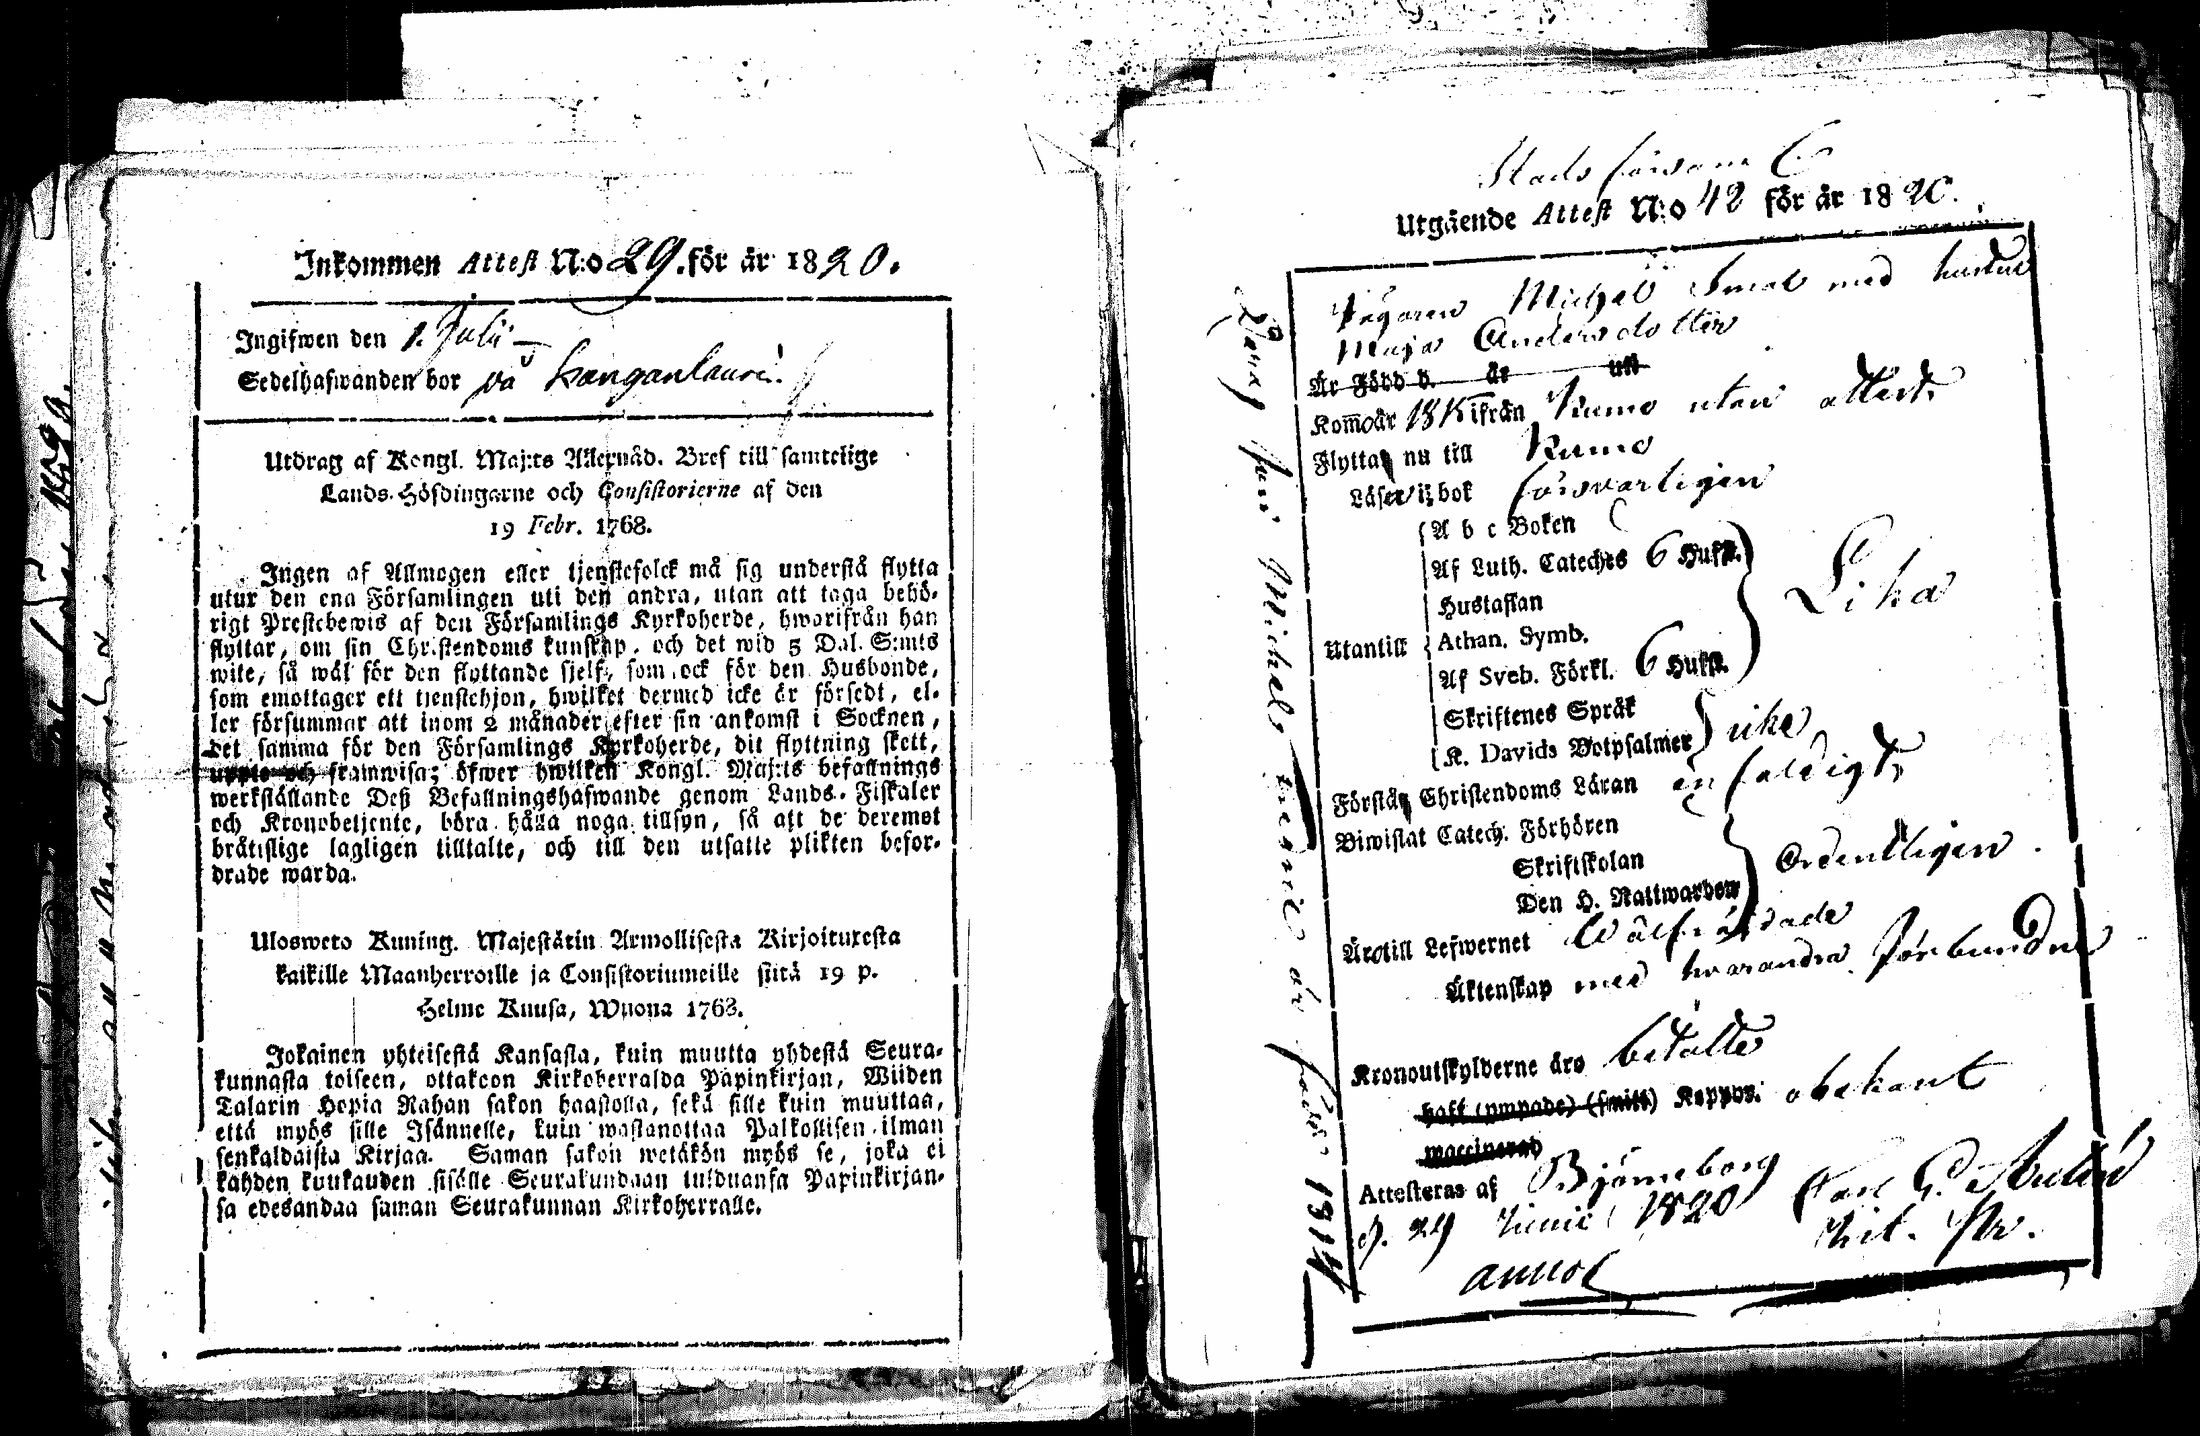 Inkommen Attest N:o 29. för år 1820.
Ingifwen den 1. Julii
Sedelhafwanden bor på Kanganlauri.
Utdrag af Kongl. Maj:ts Allernåd. Bref till samtelige
Lands-Höfdingarne och Consistorierne af den
19 Febr. 1768.
Ingen af Allmogen eller tjenstefolck må sig understå flytta
utur den ena Församlingen uti den andra, utan att taga behö-
rigt Prestebewis af den Församlings Kyrkoherde, hwarifrån han
flyttar, om sin Christendoms kunskap, och det wid 5 Dal. S:mts
wite, så wäl för den flyttande sjelf, som ock för den Husbonde,
som emottager ett tjenstehjon, hwilket dermed icke är försedt, el-
ler försummar att inom 2 månader efter sin ankomst i Socknen,
det samma för den Församlings Kyrkoherde, dit flyttning skett,
uppte och framwisa; öfwer hwilken Kongl. Maj:ts befallnings
werkställande Deß Befallningshafwande genom Lands-Fiskaler
och Kronobetjente, böra hålla noga tillsyn, så att de deremot
bråtislige lagligen tilltalte, och till den utsatte plikten befor-
drade warda.
Ulosweto Kuning. Majestätin Armollisesta Kirjoituxesta
kaikille Maanherroille ja Consistoriumeille siitä 19 p.
Helme Kuusa, Wuona 1768.
Jokainen yhteisestä Kansasta, kuin muutta yhdestä Seura-
kunnasta toiseen, ottakoon Kirkoherralda Papinkirjan, Wiiden
Talarin Hopia Rahan sakon haastolla, sekä sille kuin muuttaa,
että myös sille Isännelle, kuin wastanottaa Palkollisen ilman
senkaldaista Kirjaa. Saman sakon wetäkön myös se, joka ei
kahden kuukauden sisälle Seurakundaan tulduansa Papinkirjan-
sa edesandaa saman Seurakunnan Kirkoherralle.
Stads församl.
Utgående Attest N:o 42 för år 1820.
Michel Smal med hustru
Maja Andersdotter
Är Född d. år uti
Kom̅o år 18 ifrån Kumo utan attest
Flytta nu till Kumo
Läser i bok försvarligen
A b c Boken
Af Luth. Cateches 6 Hufst.
Hustaflan
Utantill Athan. Symb. Lika
Af Sveb. Förkl. 6 Hufst.
Skriftenes Språk
K. Davids Botpsalmer icke
Förstå Christendoms Läran enfaldigt
Biwistat Catech. Förhören
Skriftskolan Ordentligen
Den H. Nattwarden
Äro till Lefwernet Wälfräjdade
Äktenskap med hwarandra förbundne
Kronoutskylderne äro betalte
haft (ympade) (smitt) Koppor. obekant
waccinerad
Attesteras af Björneborg Carl G.
d. 29 Junii 1820
Michels är född 1814